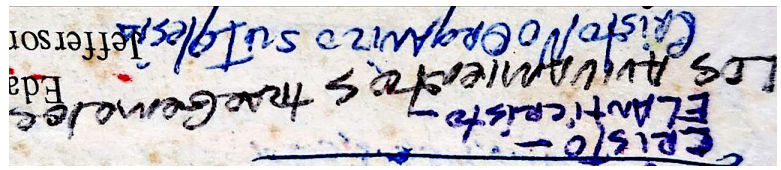 CRISTO –
EL ANTICRISTO –
LOS AVIVAMIENTOS trae Gemelos Eda
CRISTO/NO ORGANIZO su Iglesia Jefferson